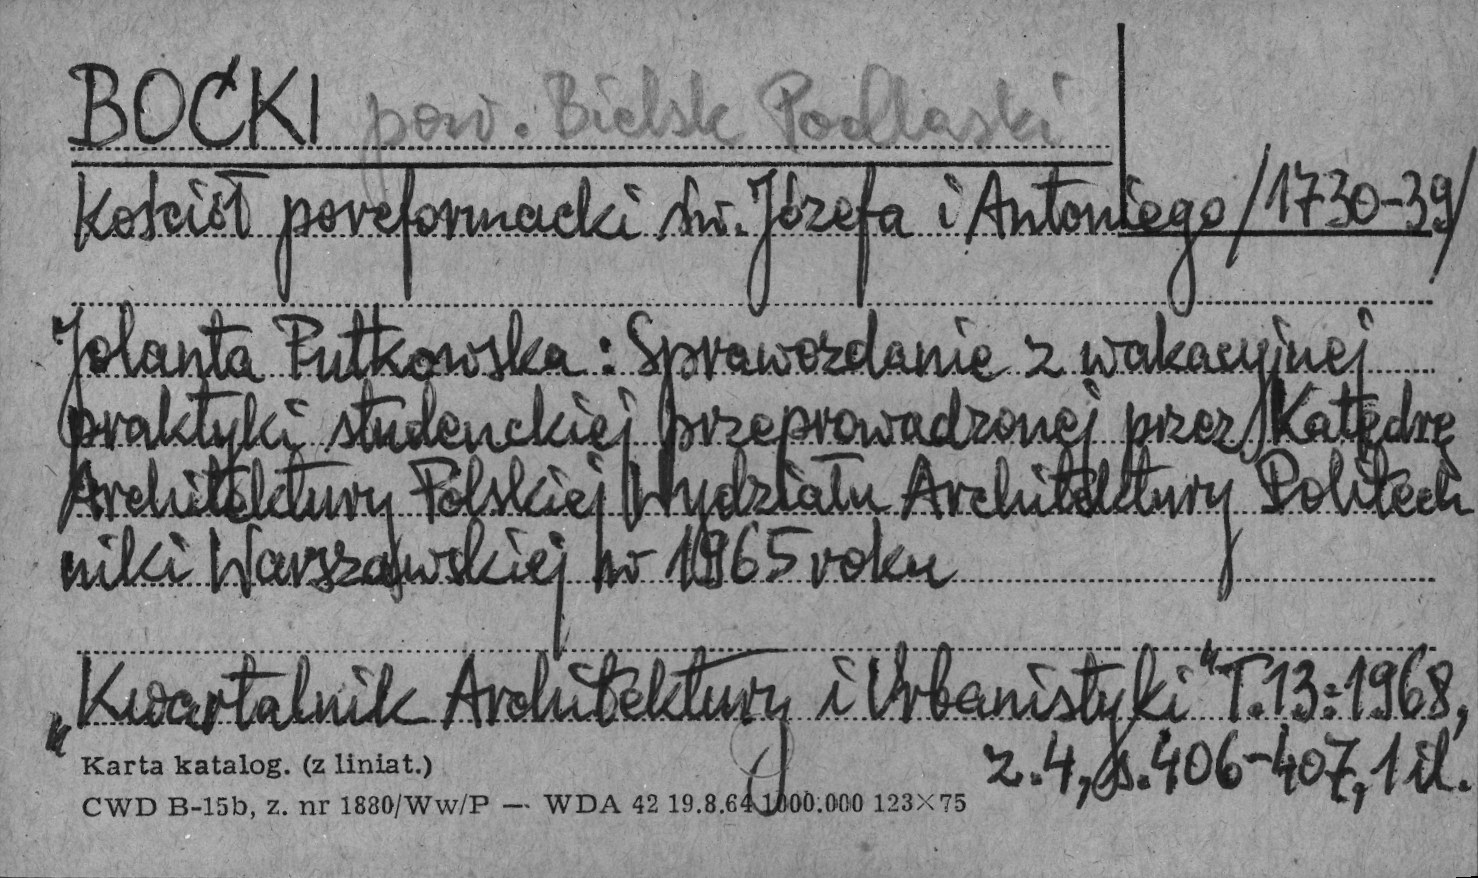 BOĆKI pow. Bielsk Podlaski
Kościół poreformacki św. Józefa i Antoniego /1730-39/
Jolanta Putkowska: Sprawozdanie z wakacyjnej
praktyki studenckiej przeprowadzonej przez Katedrę
Architektury Polskiej Wydziału Architektury Politech
niki Warszawskiej w 1965 roku
„Kwartalnik Architektury i Urbanistyki" T.13:1968,
z.4, s.406-407, 1 il.
Karta katalog. (z liniat.)
CWD B-15b, z. nr 1880/Ww/P — WDA 42 19.8.64 1000.000 123×75